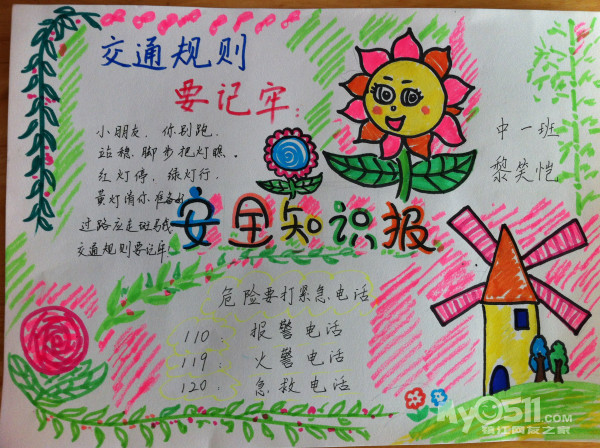 交通规则
要记牢:
小朋友,你别跑,
站稳脚步把灯瞧。
红灯停,绿灯行,
黄灯请你准备好
过路应走斑马线
交通规则要记牢!
中一班
黎笑恺
安全知识报
危险要打紧急电话
110: 报警电话
119: 火警电话
120: 急救电话
My0511.COM
镇江网友之家